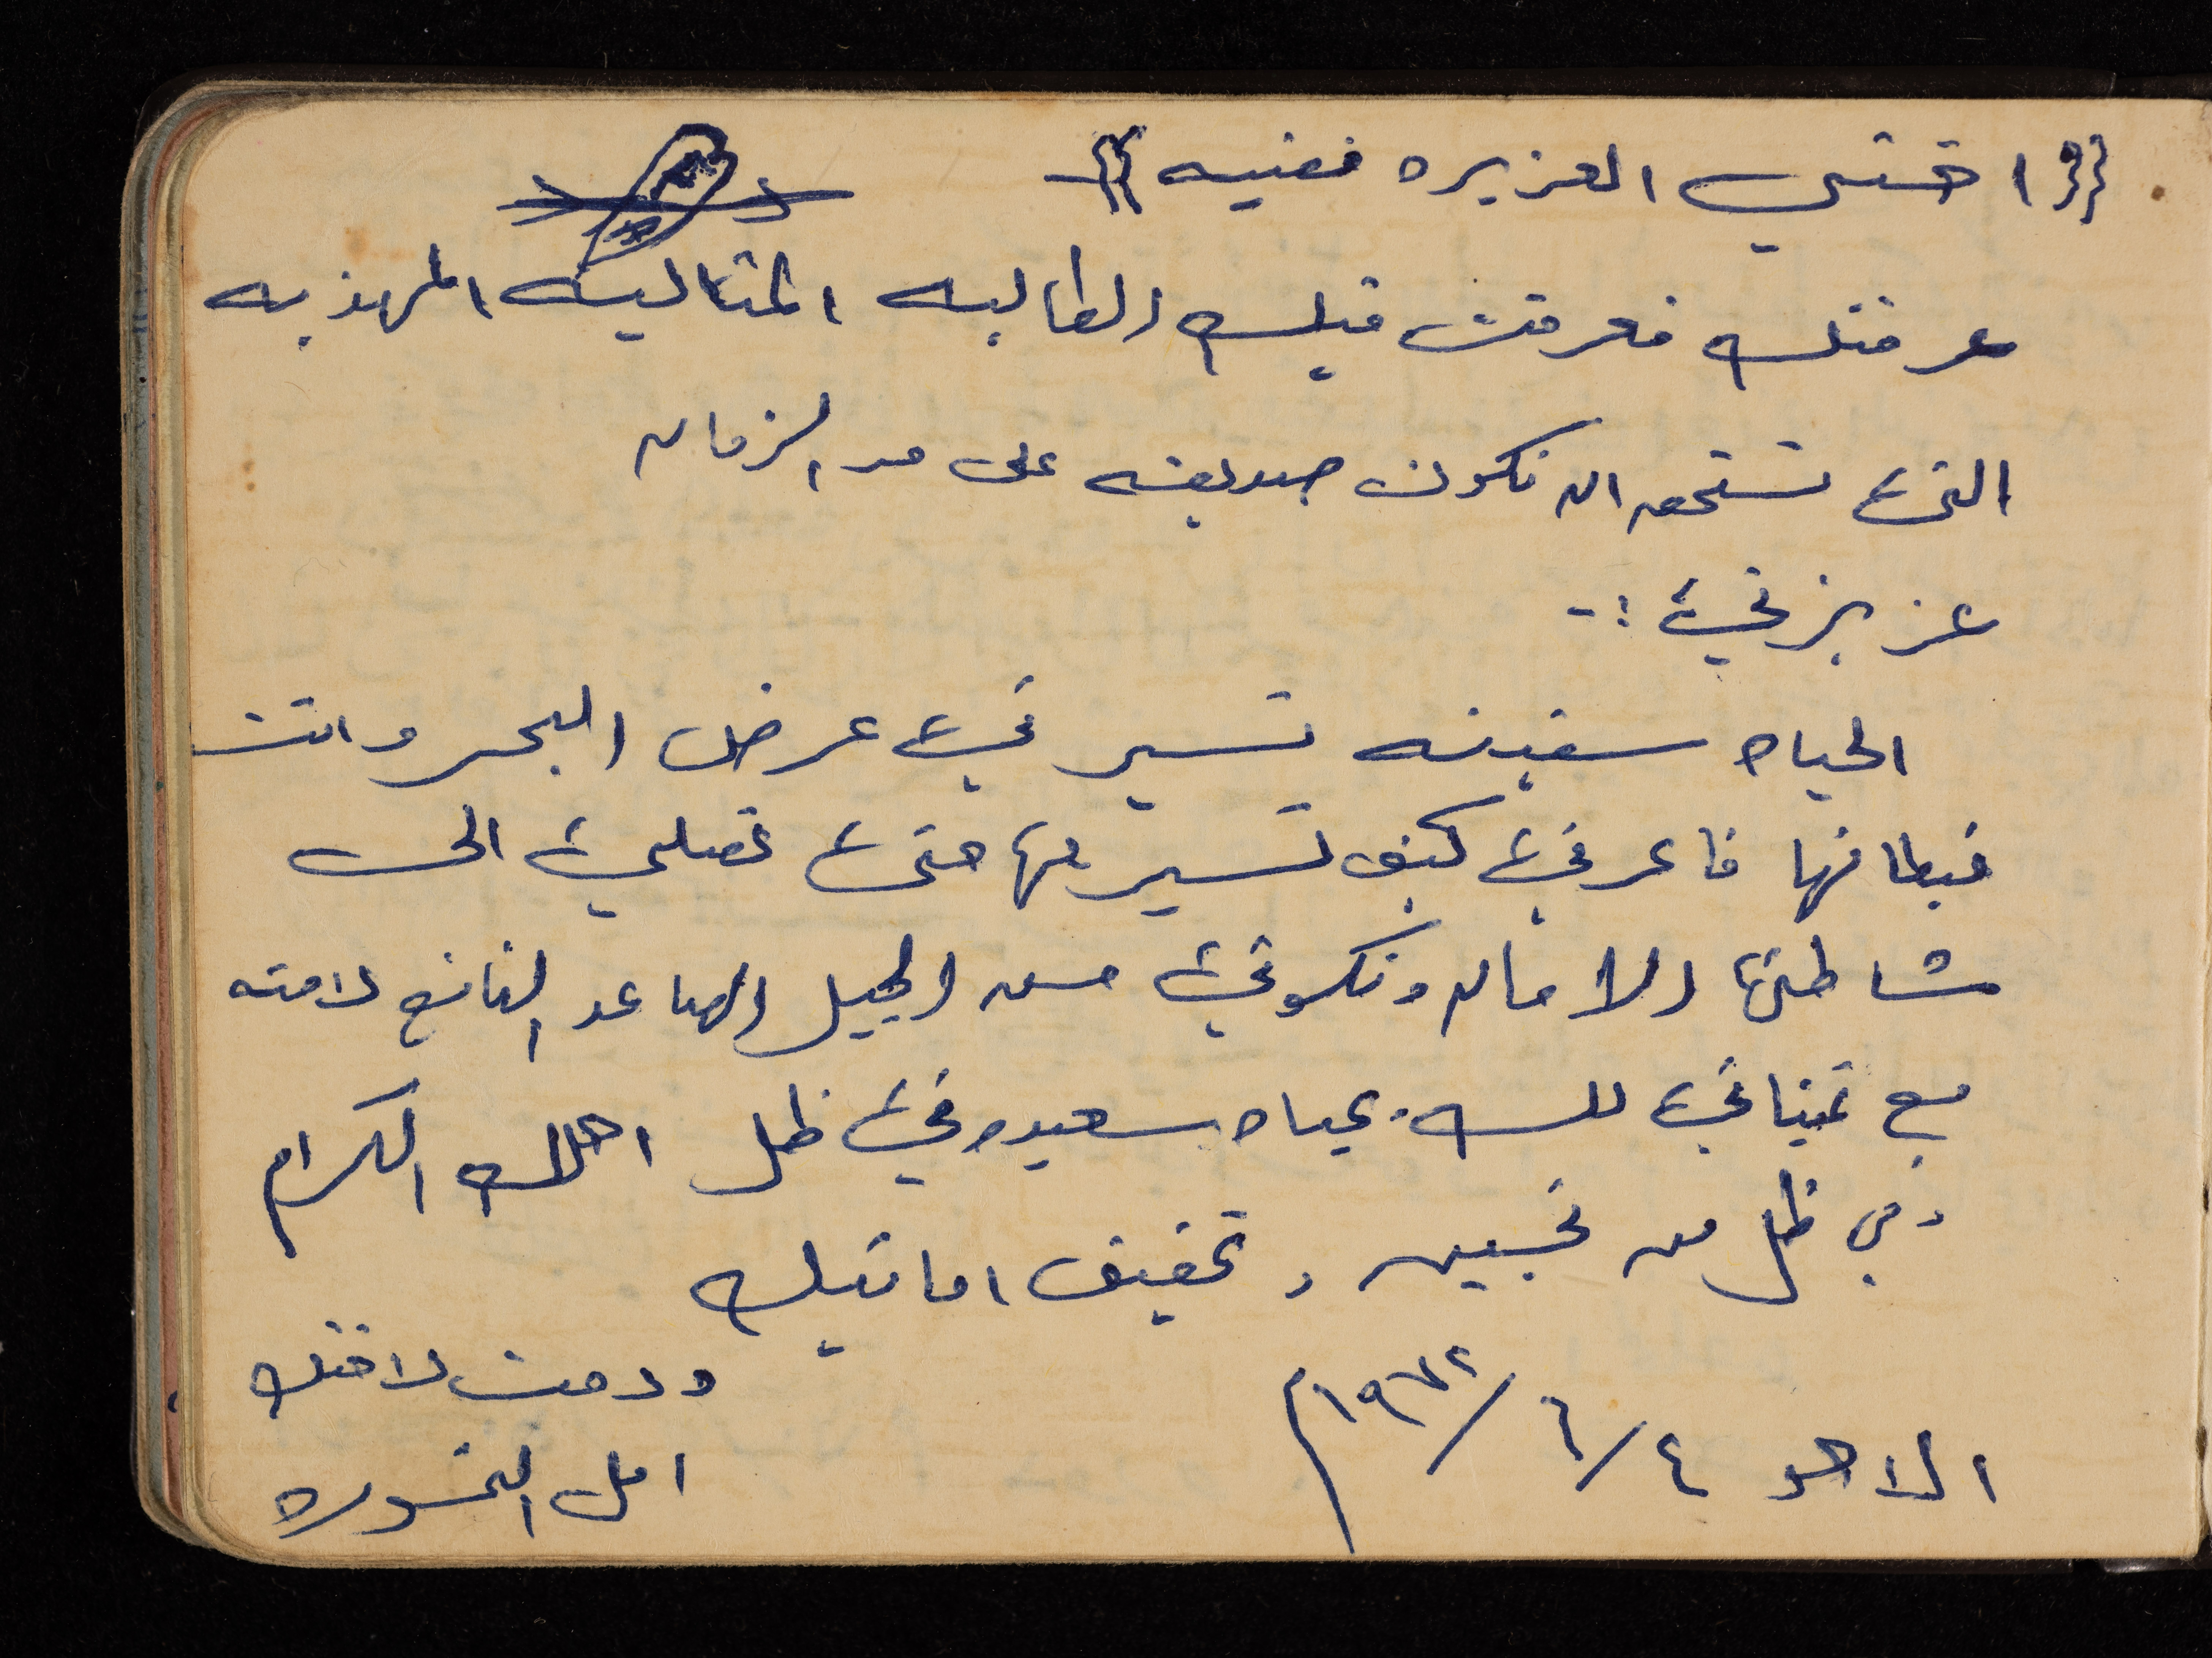 اختي العزيزه فضيه
عرفتك فعرفت فيك الطالبه المثاليه المهذبه
التي تستحق ان تكون صديقه على مد الزمان
عزيزتي :-
الحياه سفينه تسير في عرض البحر وانت
قبطانها فاعرفي كيف تسير بها حتى تصلي الى
شاطئها الامان وتكوني من الجيل الصاعد النافع لامته
مع تمنياتي لك بحياه سعيده في ظل اهلك الكرام
وفي ظل من تحبين وتحقيق امانيك
ودمت لاختك
امل
الاحد ٤/٦/١٩٧٢م